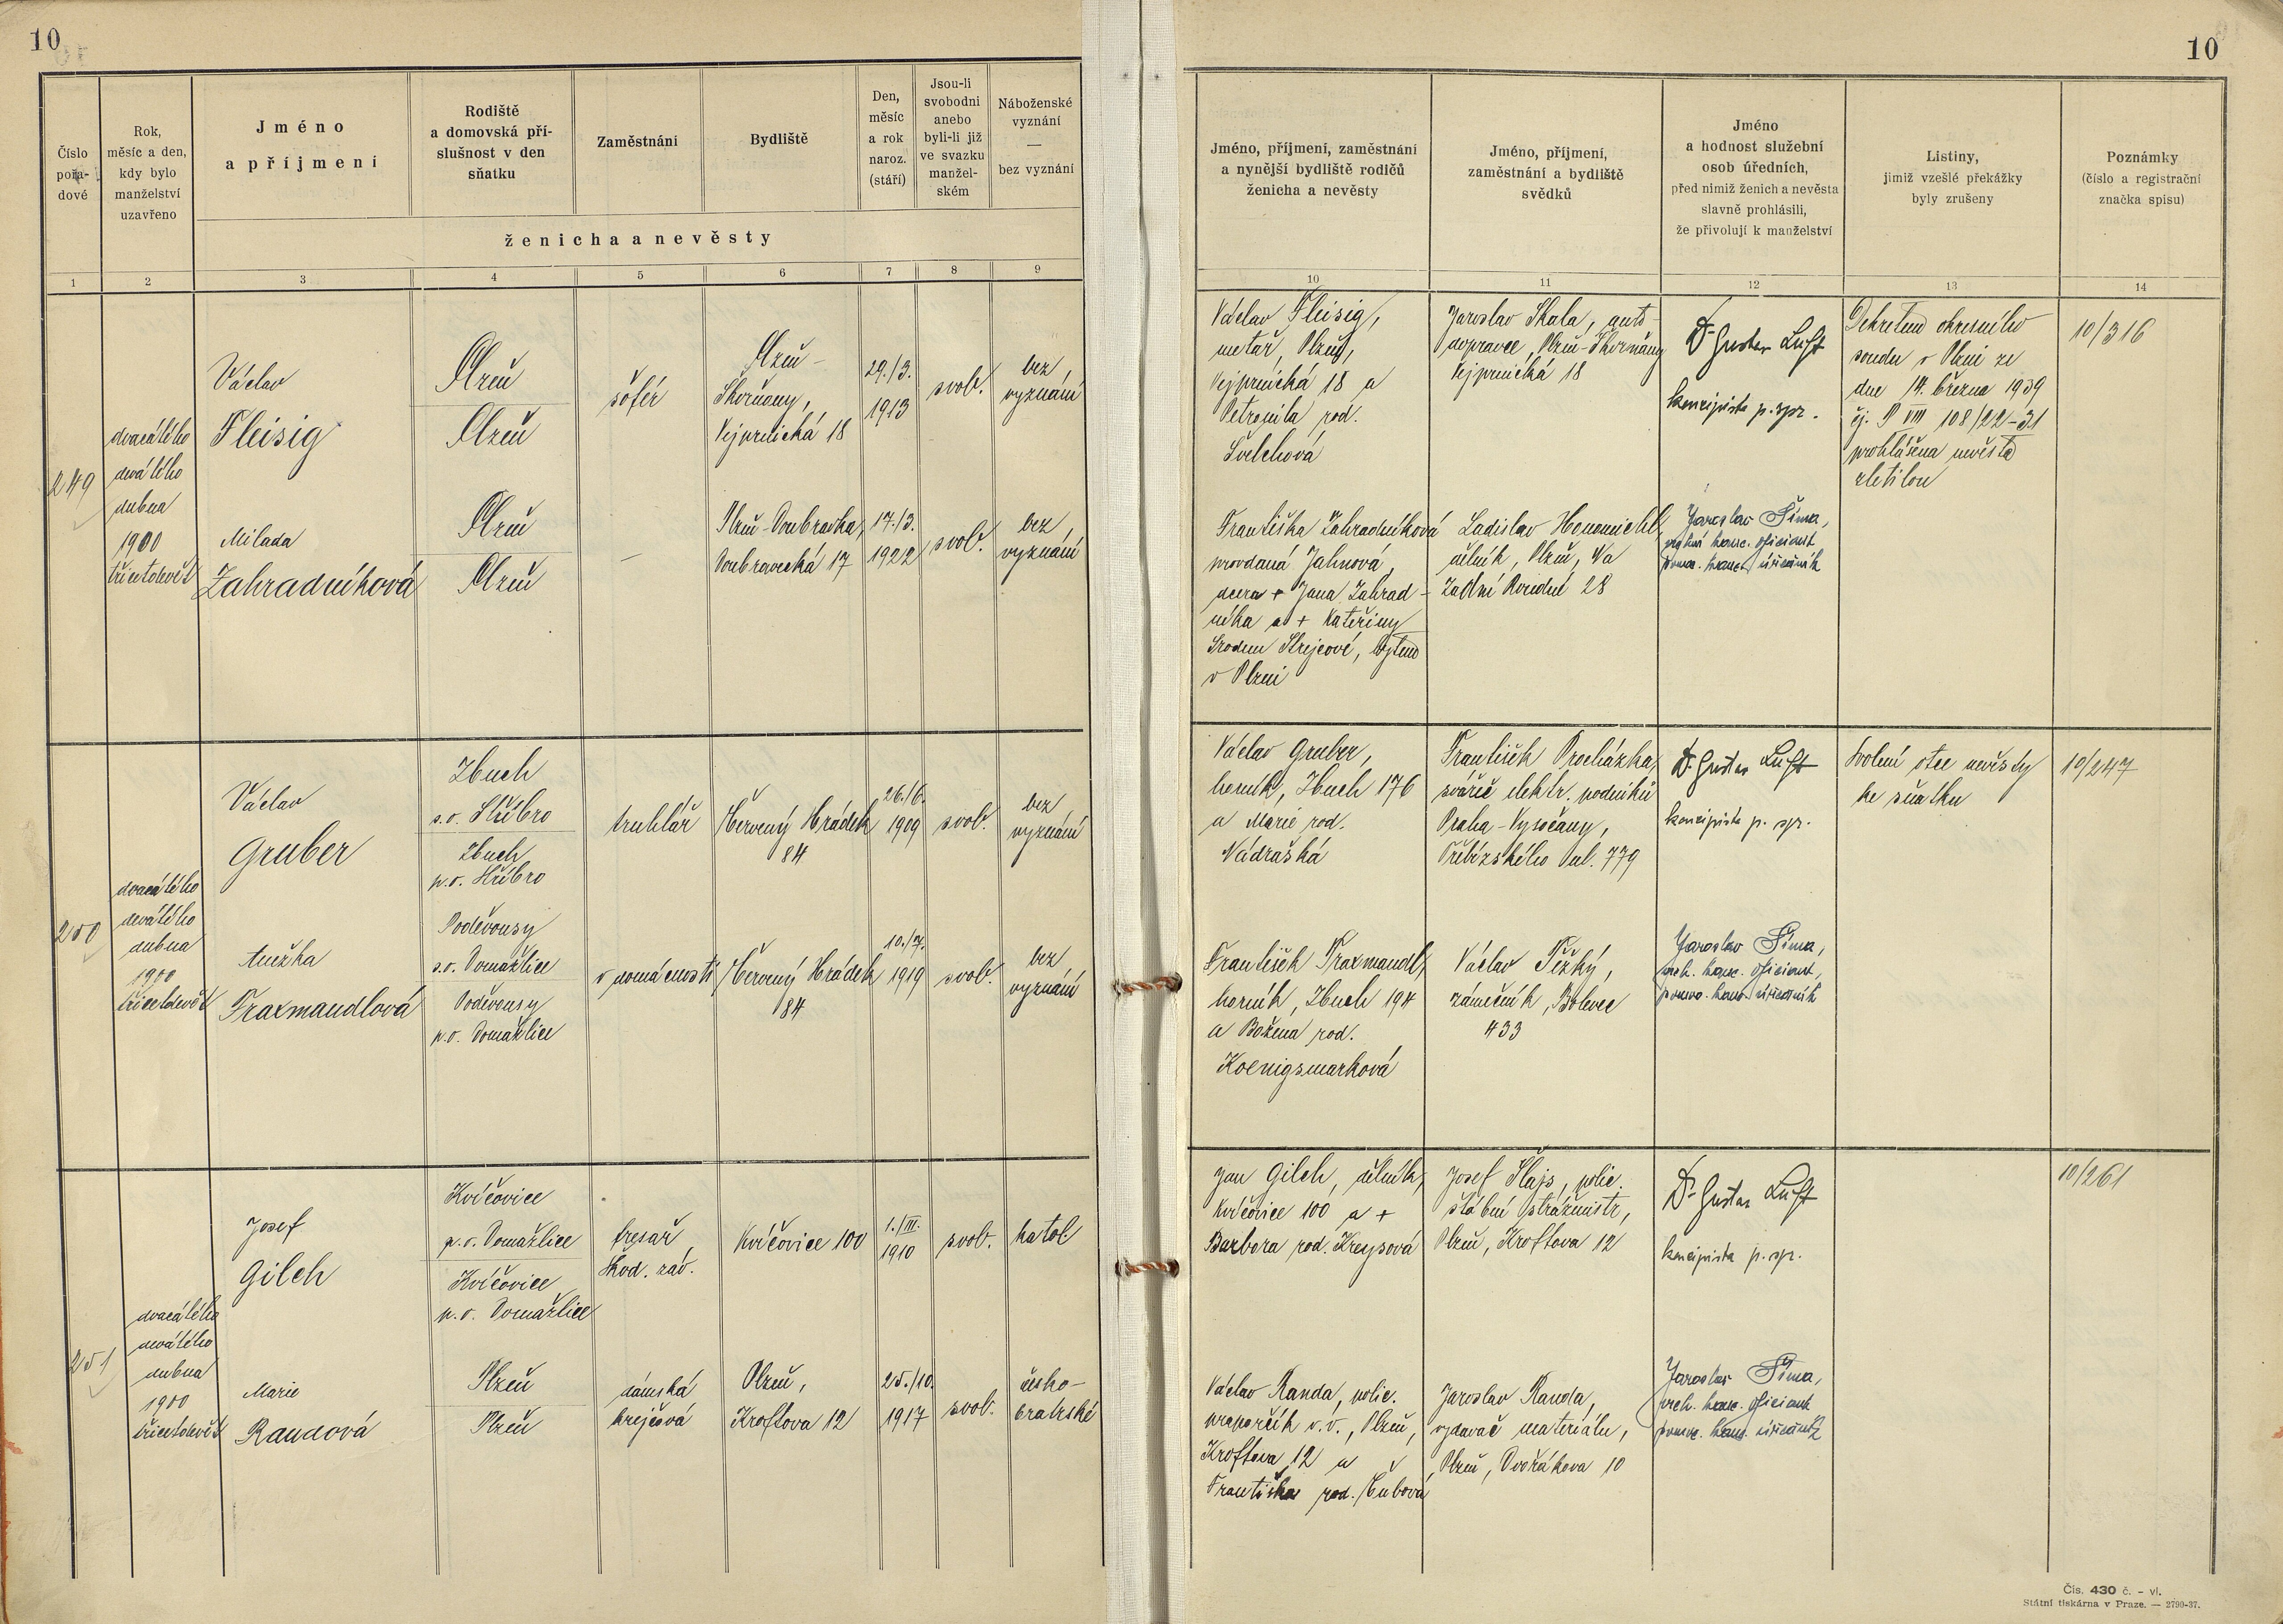 10
10
Číslo pořa- dové
Rok, měsíc a den, kdy bylo manželství uzavřeno
Jméno a příjmení
Rodiště a domovská pří- slušnost v den sňatku
Zaměstnání
Bydliště
Den, měsíc a rok naroz. (stáří)
Jsou-li svobodni anebo byli-li již ve svazku manžel- ském
Náboženské vyznání — bez vyznání
ženicha a nevěsty
Jméno, příjmení, zaměstnání a nynější bydliště rodičů ženicha a nevěsty
Jméno, příjmení, zaměstnání a bydliště svědků
Jméno a hodnost služební osob úředních, před nimiž ženich a nevěsta slavně prohlásili, že přivolují k manželství
Listiny, jimiž vzešlé překážky byly zrušeny
Poznámky (číslo a registrační značka spisu)
1 2 3 4 5 6 7 8 9 10 11 12 13 14
249
dvacátého
devátého
dubna
1900
třicetdevět
Václav
Fleisig
Plzeň
Plzeň
šofér
Plzeň-
Skvrňany,
Vejprnická 18
29./3.
1913
svob.
bez
vyznání
Milada
Zahradníková
Plzeň
Plzeň
—
Plzeň-Doubravka,
Doubravecká 17
17./3.
1922
svob.
bez
vyznání
Václav Fleisig,
metař, Plzeň,
Vejprnická 18 a
Petronila rod.
Švelchová
Františka Zahradníková
provdaná Jahnová,
dcera + Jana Zahrad-
níka a + Kateřiny
Strejcové, bytem
v Plzni
Jaroslav Skala, auto-
dopravce, Plzeň-Skvrňany
Vejprnická 18
Ladislav Honomichl,
dělník, Plzeň, Na
Zadní Roudné 28
Dr Gustav Luft
koncipista p. spr.
Jaroslav Šíma,
vrchní kanc. oficiant
pomoc. kanc. úředník
Dekretem okresního
soudu v Plzni ze
dne 14. března 1939
čj. P VIII 108/22-31
prohlášena nevěsta
zletilou
10/316
250
dvacátého
devátého
dubna
1900
třicetdevět
Václav
Gruber
Zbuch
s.o. Stříbro
Zbuch
p.o. Stříbro
truhlář
Červený Hrádek
84
26./6.
1909
svob.
bez
vyznání
Anežka
Fraxmandlová
Poděvousy
s.o. Domažlice
Poděvousy
p.o. Domažlice
v domácnosti
Červený Hrádek
84
10./7.
1919
svob.
bez
vyznání
Václav Gruber,
horník, Zbuch 176
a Marie rod.
Nádražká
František Fraxmandl,
horník, Zbuch 194
a Božena rod.
Koenigsmarková
František Procházka,
svářeč elektr. podniků
Praha-Vysočany,
Přibízského ul. 779
Václav Těžký,
zámečník, Bolevec
433
Dr. Gustav Luft
koncipista p. spr.
Jaroslav Šíma,
vrch. kanc. oficiant,
pomoc. kanc. úředník
Svolení otce nevěsty
ke sňatku
10/247
251
dvacátého
devátého
dubna
1900
třicetdevět
Josef
Gilch
Kvíčovice
p.o. Domažlice
Kvíčovice
p.o. Domažlice
fresař
škod. záv.
Kvíčovice 100
1./III.
1910
svob.
katol.
Marie
Randová
Plzeň
Plzeň
dámská
krejčová
Plzeň,
Kroftova 12
25./10.
1917
svob.
česko-
bratrské
Jan Gilch, dělník,
Kvíčovice 100 a +
Barbora rod. Kreysová
Václav Randa, polic.
praporčík v.v., Plzeň,
Kroftova 12 a
Františka rod. Čubová
Josef Šlajs, polic.
štábní strážmistr,
Plzeň, Kroftova 12
Jaroslav Randa,
vydavač materiálu,
Plzeň, Dvořákova 10
Dr Gustav Luft
koncipista p. spr.
Jaroslav Šíma,
vrch. kanc. oficiant
pomoc. kanc. úředník
10/261
Čís. 430 č. - vl.
Státní tiskárna v Praze. — 2790-37.